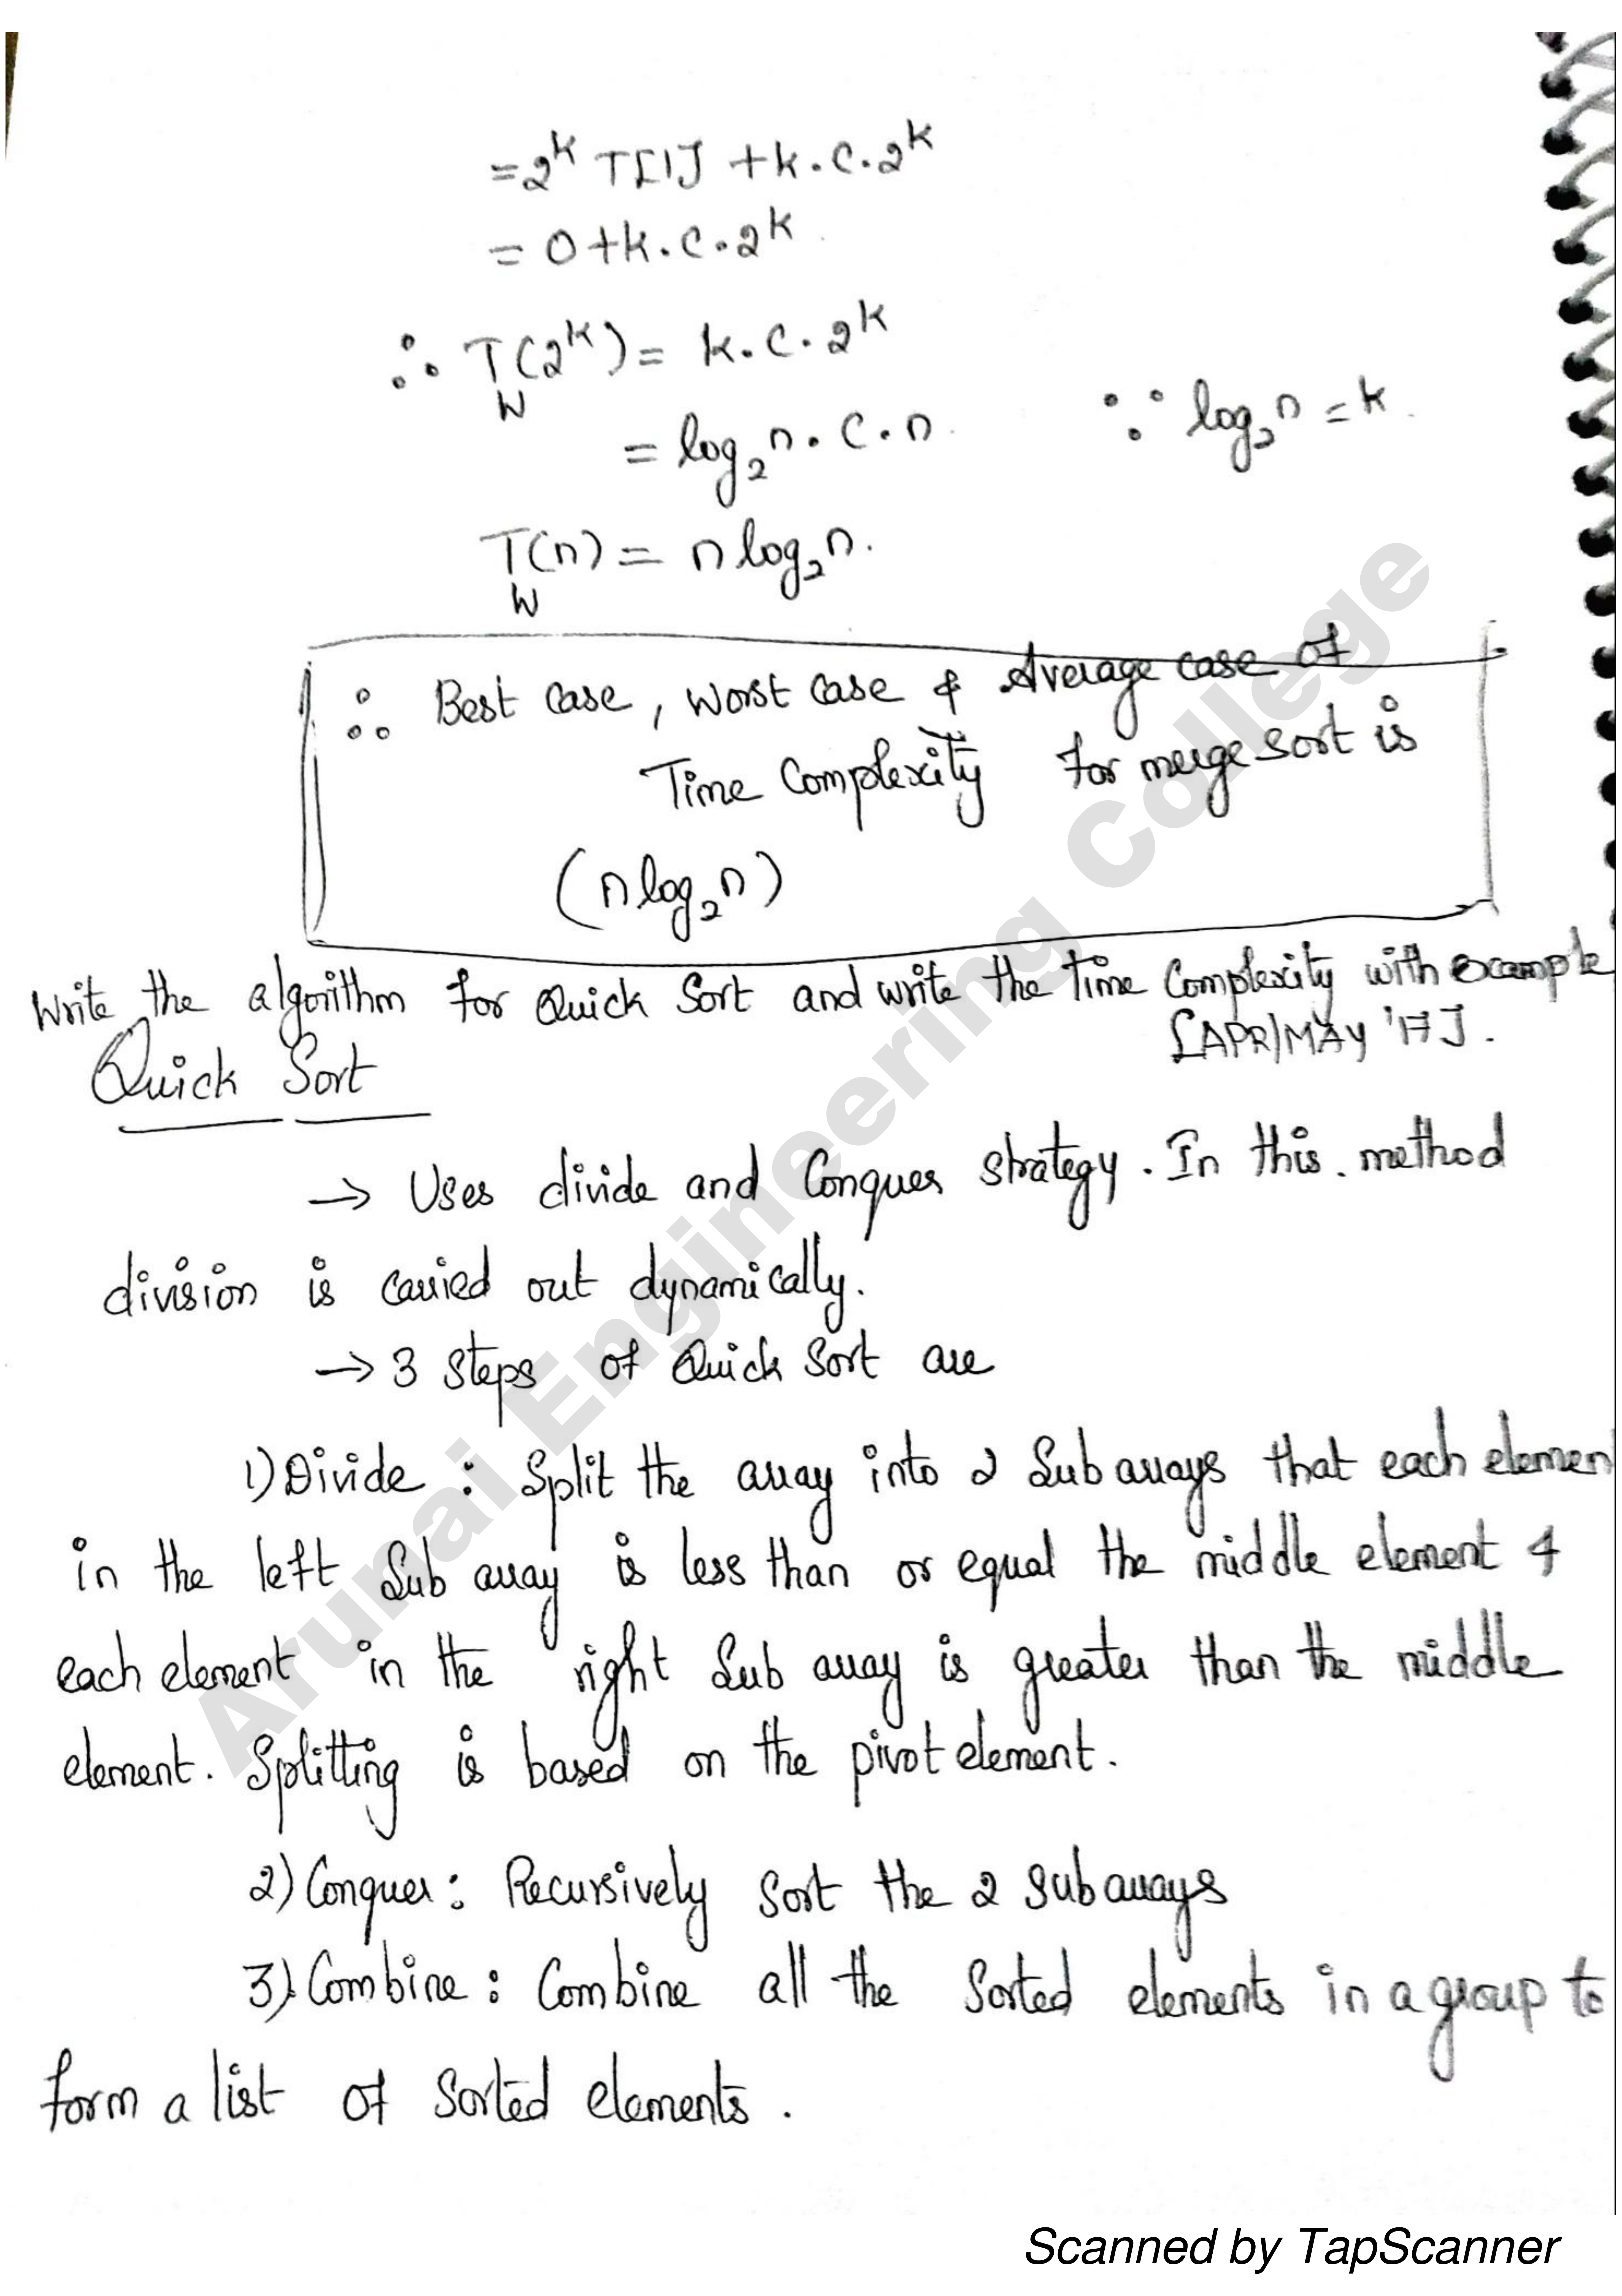 =2^k T[1] + k.c.2^k
= 0+k.c.2^k.
∴ T_W(2^k) = k.c.2^k
= log₂n.c.n. ∵ log₂n = k.
T_W(n) = n log₂n.
∴ Best case, worst case & Average case of
Time Complexity for merge sort is
(n log₂n)
Write the algorithm for Quick Sort and write the time Complexity with example
[APR/MAY '17].
Quick Sort
→ Uses divide and Conquer strategy. In this method
division is carried out dynamically.
→ 3 steps of Quick Sort are
1) Divide : Split the array into 2 Sub arrays that each elemen
in the left Sub array is less than or equal the middle element &
each element in the right Sub array is greater than the middle
element. Splitting is based on the pivot element.
2) Conquer : Recursively Sort the 2 Sub arrays
3) Combine : Combine all the Sorted elements in a group to
form a list of Sorted elements.
Arunai Engineering College
Scanned by TapScanner